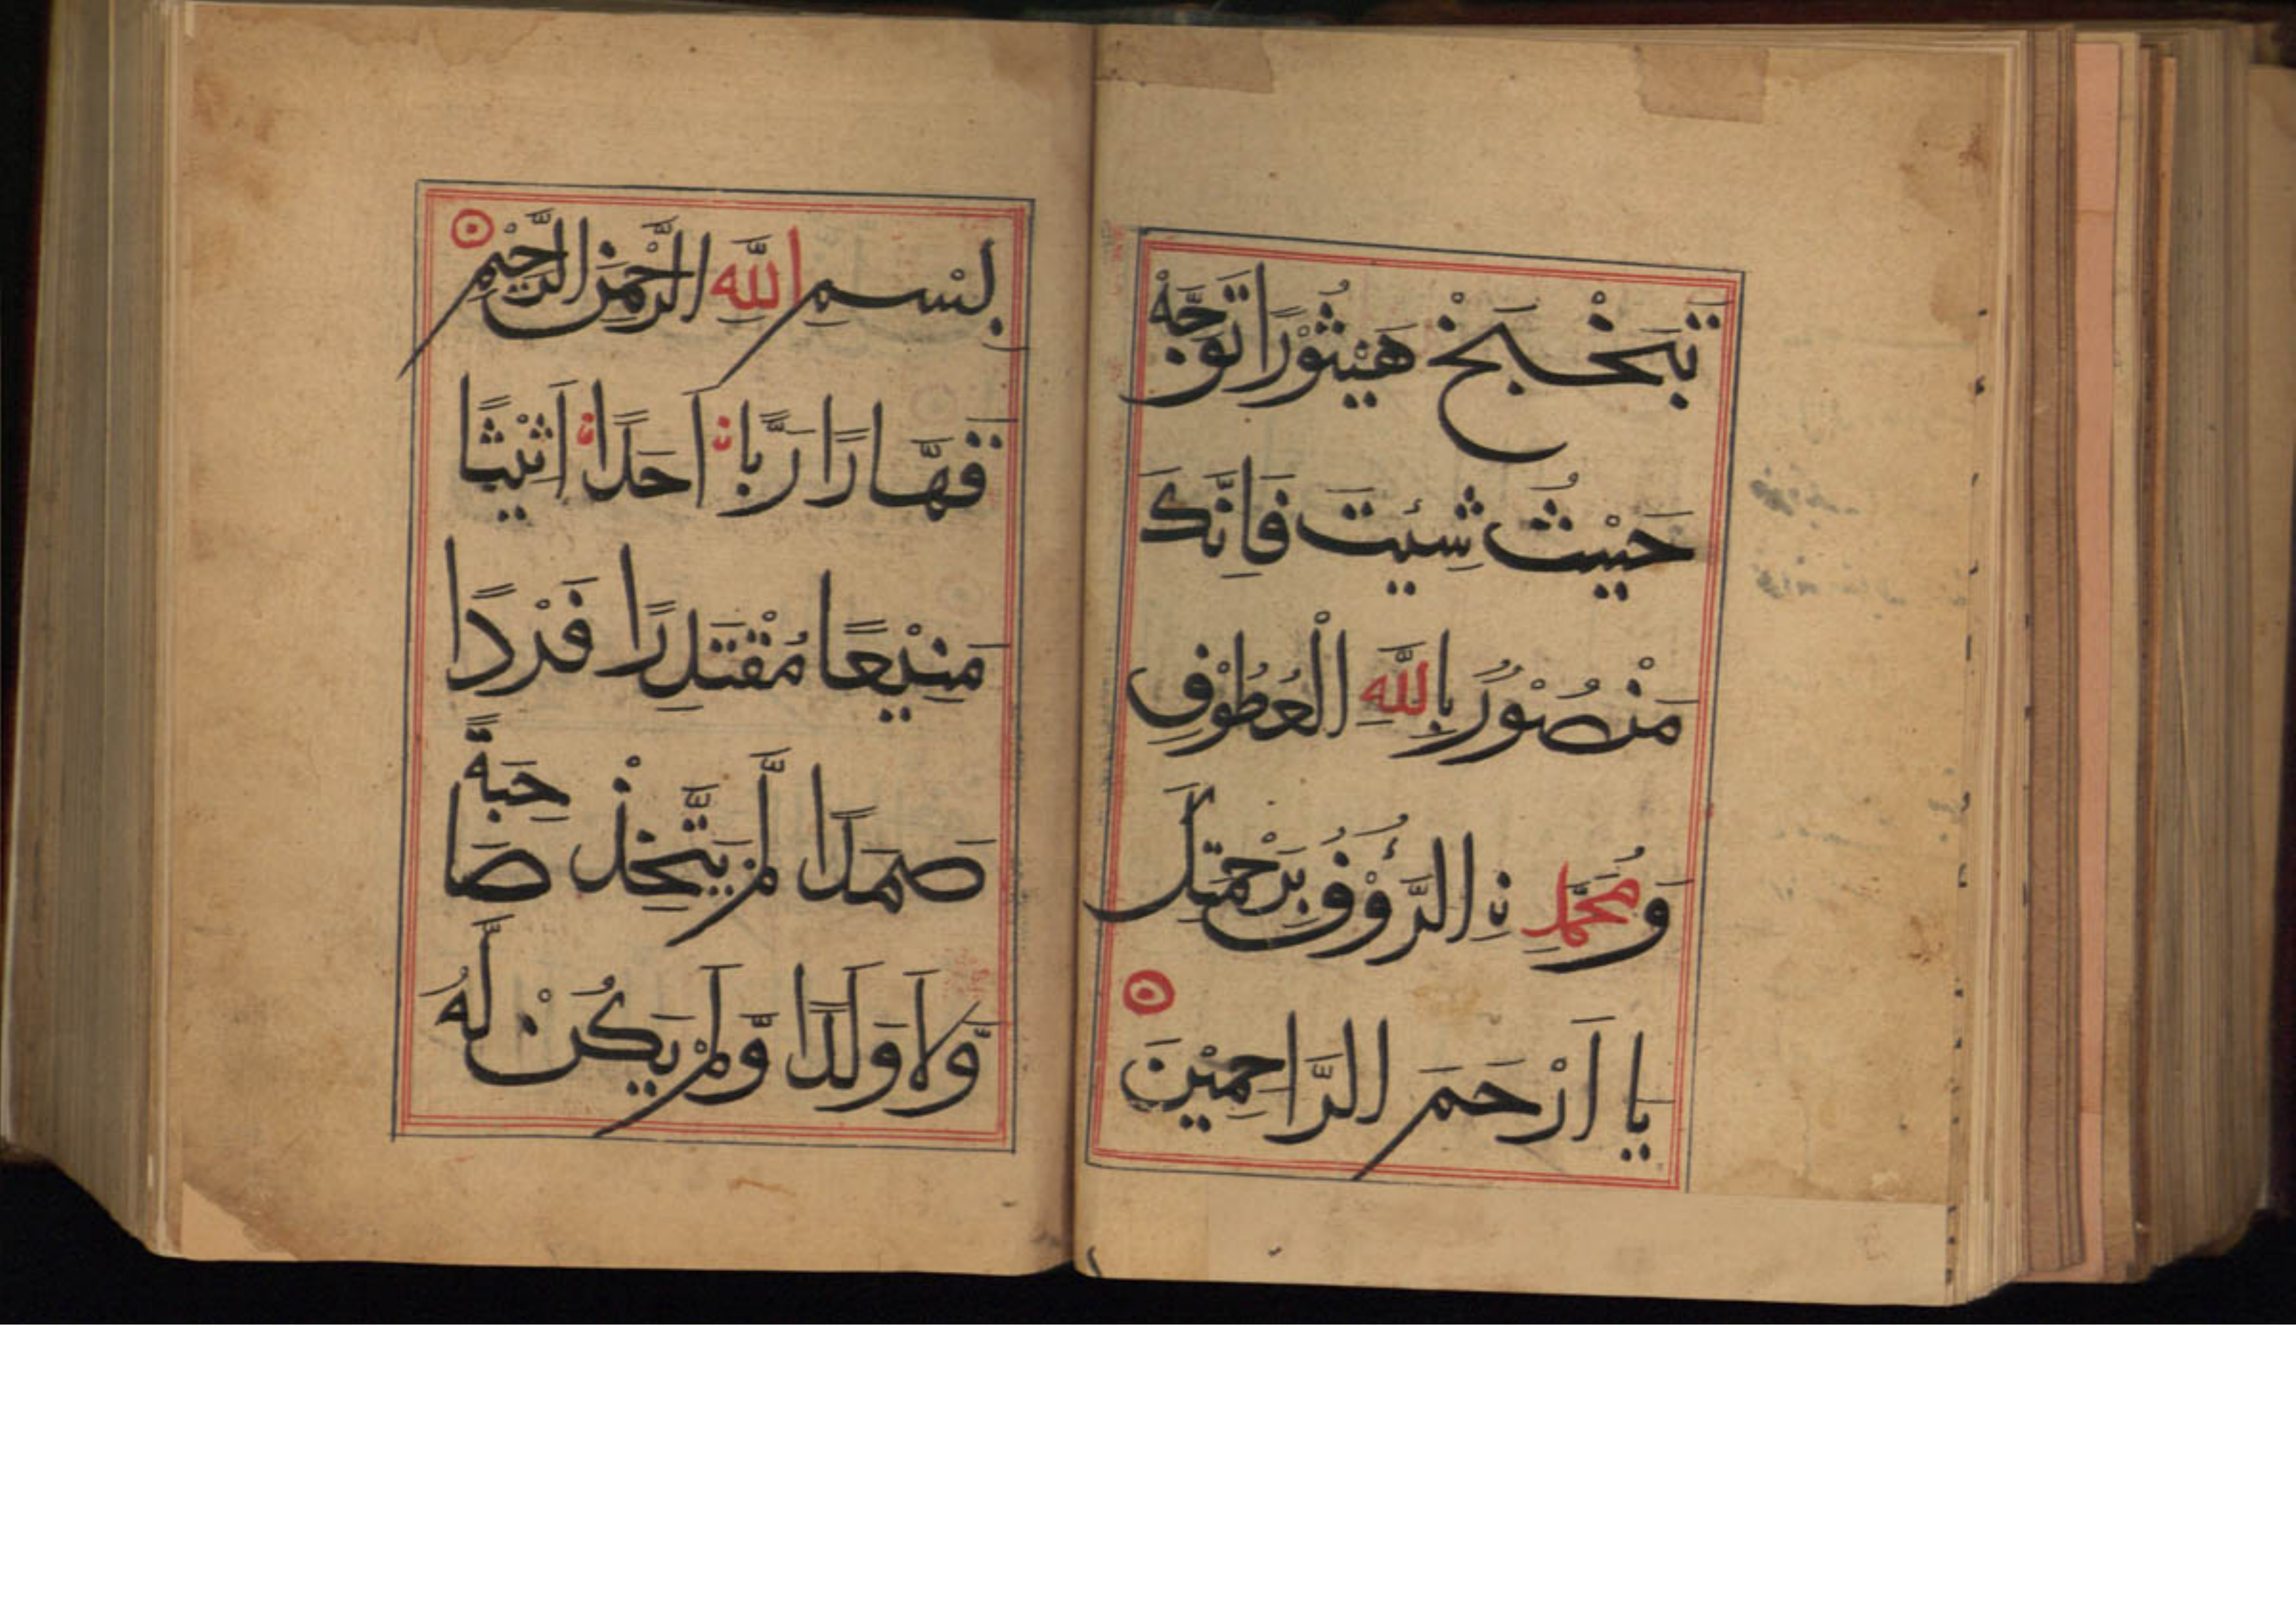 تَبَخْبَخْ هَيْثُوْرًا تَوَجَّهْ
حَيْثُ شِئْيتَ فَاِنَّكَ
مَنْصُوْرٌ بِاللّٰهِ الْعُطُوْفِ
وَمُحَمَّدِ نِ الرَّؤُوْفُ بِرَحْمَتِكَ
يا اَرْحَمَ الرَّاحِمِيْنَ
بِسْمِ اللّٰهِ الرَّحْمٰنِ الرَّحِيْمِ
قَهَّارًا رَبًّا نِ اَحَدًا نِ اَثْيثًا
مَنِيْعًا مُقْتَدِرًا فَرْدًا
صَمَدًا لَّمْ يَتَّخِذْ صَاحِبَةً
وَّلَا وَلَدًا وَّلَمْ يَكُنْ لَّهُ